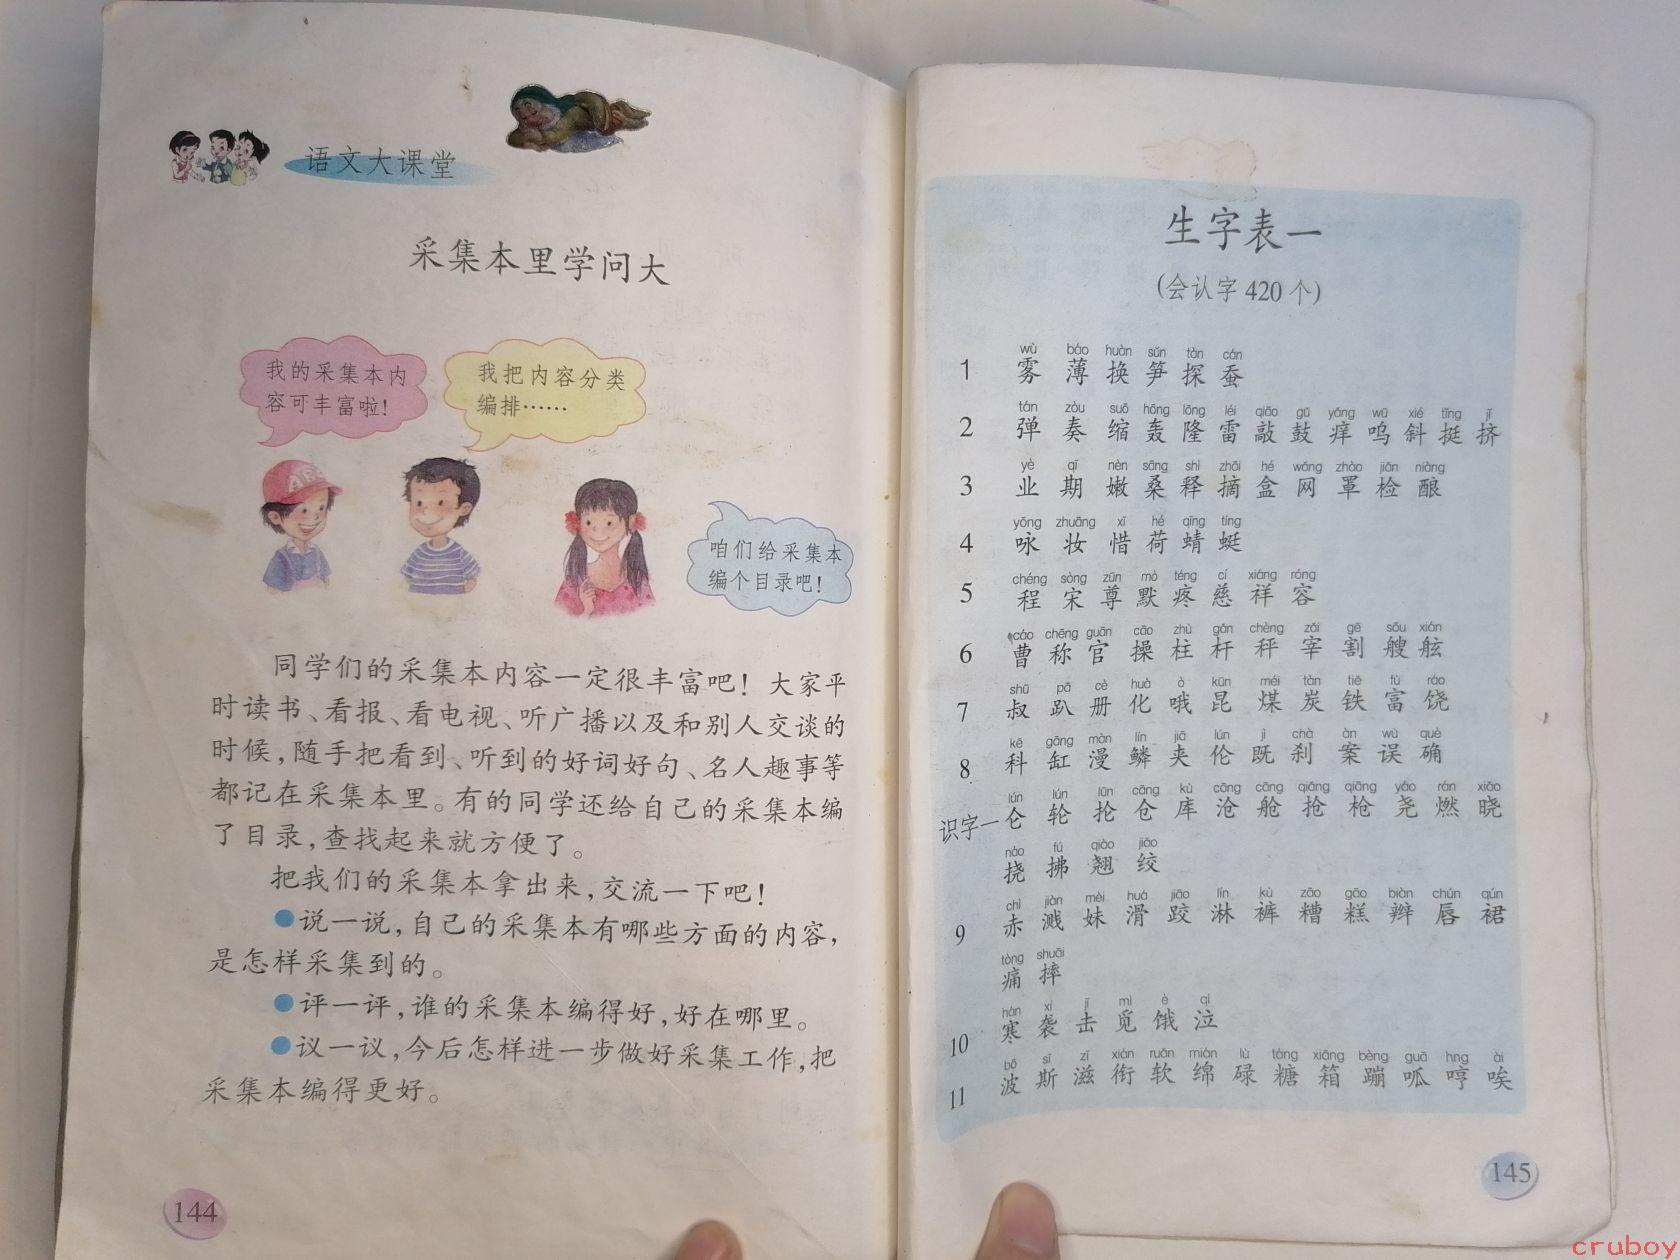 语文大课堂
采集本里学问大
我的采集本内
容可丰富啦！
我把内容分类
编排……
咱们给采集本
编个目录吧！
同学们的采集本内容一定很丰富吧！大家平
时读书、看报、看电视、听广播以及和别人交谈的
时候，随手把看到、听到的好词好句、名人趣事等
都记在采集本里。有的同学还给自己的采集本编
了目录，查找起来就方便了。
把我们的采集本拿出来，交流一下吧！
●说一说，自己的采集本有哪些方面的内容，
是怎样采集到的。
●评一评，谁的采集本编得好，好在哪里。
●议一议，今后怎样进一步做好采集工作，把
采集本编得更好。
144
生字表一
（会认字420个）
wù báo huàn sǔn tàn cán
1 雾 薄 换 笋 探 蚕
tán zòu suō hōng lōng léi qiāo gǔ yǎng wū xié tǐng jǐ
2 弹 奏 缩 轰 隆 雷 敲 鼓 痒 呜 斜 挺 挤
yè qī nèn sāng shì zhāi hé wǎng zhào jiǎn niàng
3 业 期 嫩 桑 释 摘 盒 网 罩 检 酿
yǒng zhuāng xī hé qīng tíng
4 咏 妆 惜 荷 蜻 蜓
chéng sòng zūn mò téng cí xiáng róng
5 程 宋 尊 默 疼 慈 祥 容
cáo chēng guān cāo zhù gǎn chèng zǎi gē sōu xián
6 曹 称 官 操 柱 杆 秤 宰 割 艘 舷
shū pā cè huà ò kūn méi tàn tiě fù ráo
7 叔 趴 册 化 哦 昆 煤 炭 铁 富 饶
kē gāng màn lín jiā lún jì chà àn wù què
8 科 缸 漫 鳞 夹 伦 既 刹 案 误 确
lún lún lūn cāng kù cāng cāng qiǎng qiāng yáo rán xiǎo
识字一 仑 轮 抡 仓 库 沧 舱 抢 枪 尧 燃 晓
náo fú qiào jiǎo
挠 拂 翘 绞
chì jiàn mèi huá jiāo lín kù zāo gāo biàn chún qún
9 赤 溅 妹 滑 跤 淋 裤 糟 糕 辫 唇 裙
tòng shuāi
痛 摔
hán xí jī mì è qì
10 寒 袭 击 觅 饿 泣
bō sī zī xián ruǎn mián lù táng xiāng bèng guā hng ài
11 波 斯 滋 衔 软 绵 碌 糖 箱 蹦 呱 哼 唉
145
cruboy